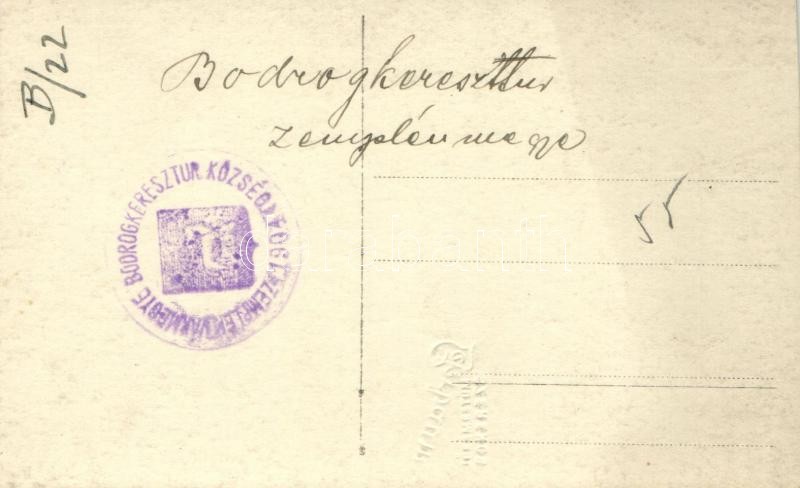 B/22
Bodrogkeresztur
zemplénmege
BODROGKERESZTUR KÖZSÉG 1904 ZEMPLÉN VÁRMEGYE
55